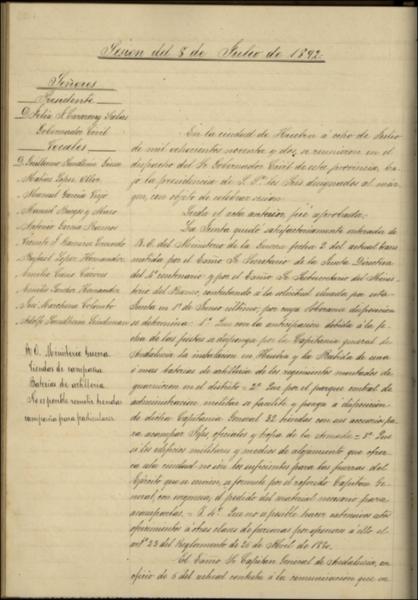 Sesion del 8 de Julio de 1892.
Señores
Presidente
Gobernador Civil
Vocales
Matias Lopez
Manuel Garcia Viejo
Manuel
Antonio Garcia Ramos
Rafael Lopez Hernandez
Emilio Cano Cáceres
Emilio Hernandez
José Marchena Colombo
Adolfo Sundheim Lindeman
R. O. Ministerio Guerra
Tiendas de campaña
Baterias de artilleria
No es posible remitir tiendas
campaña para particulares
En la ciudad de Huelva á ocho de Julio
de mil ochocientos noventa y dos, se reunieron en el
despacho del Sr. Gobernador Civil de esta provincia, ba-
jo la presidencia de S. Sª los Sres designados al már-
gen, con objeto de celebrar sesion.
Leida el acta anterior, fué aprobada.
La Junta quedó satisfactoriamente enterada de
R. O. del Ministerio de la Guerra fecha 2 del actual trans-
mitida por el Excmo Sr Secretario de la Junta Directiva
del 4º centenario y por el Excmo Sr Subsecretario del Minis-
terio del Ramo, contestando á la solicitud elevada por esta
Junta en 1º de Junio último; por cuya soberana disposicion
se determina: 1º Que con la anticipacion debida á la fe-
cha de las fiestas se disponga por la Capitania general de
Andalucia la instalacion en Huelva y la Rábida de una
ó mas baterias de artilleria de los regimientos montados de
guarnicion en el distrito = 2º Que por el parque central de
administracion militar se facilite y ponga á disposicion
de dicha Capitania General 32 tiendas con sus accesorios pa-
ra acampar Jefes, oficiales y tropa de la Armada = 3º Que
si los edificios militares y medios de alojamiento que ofrez-
ca esta ciudad no son los suficientes para las fuerzas del
Ejército que se envien, se formule por el referido Capitan Ge-
neral, con urgencia, el pedido del material necesario para
acamparlas = Y 4º Que no es posible hacer extensivos estos
ofrecimientos á otras clases de personas por oponerse á ello el
artº 23 del Reglamento de 26 de Abril de 18
El Excmo Sr Capitan General de Andalucia, en
oficio de 5 del actual contesta á la comunicacion que se